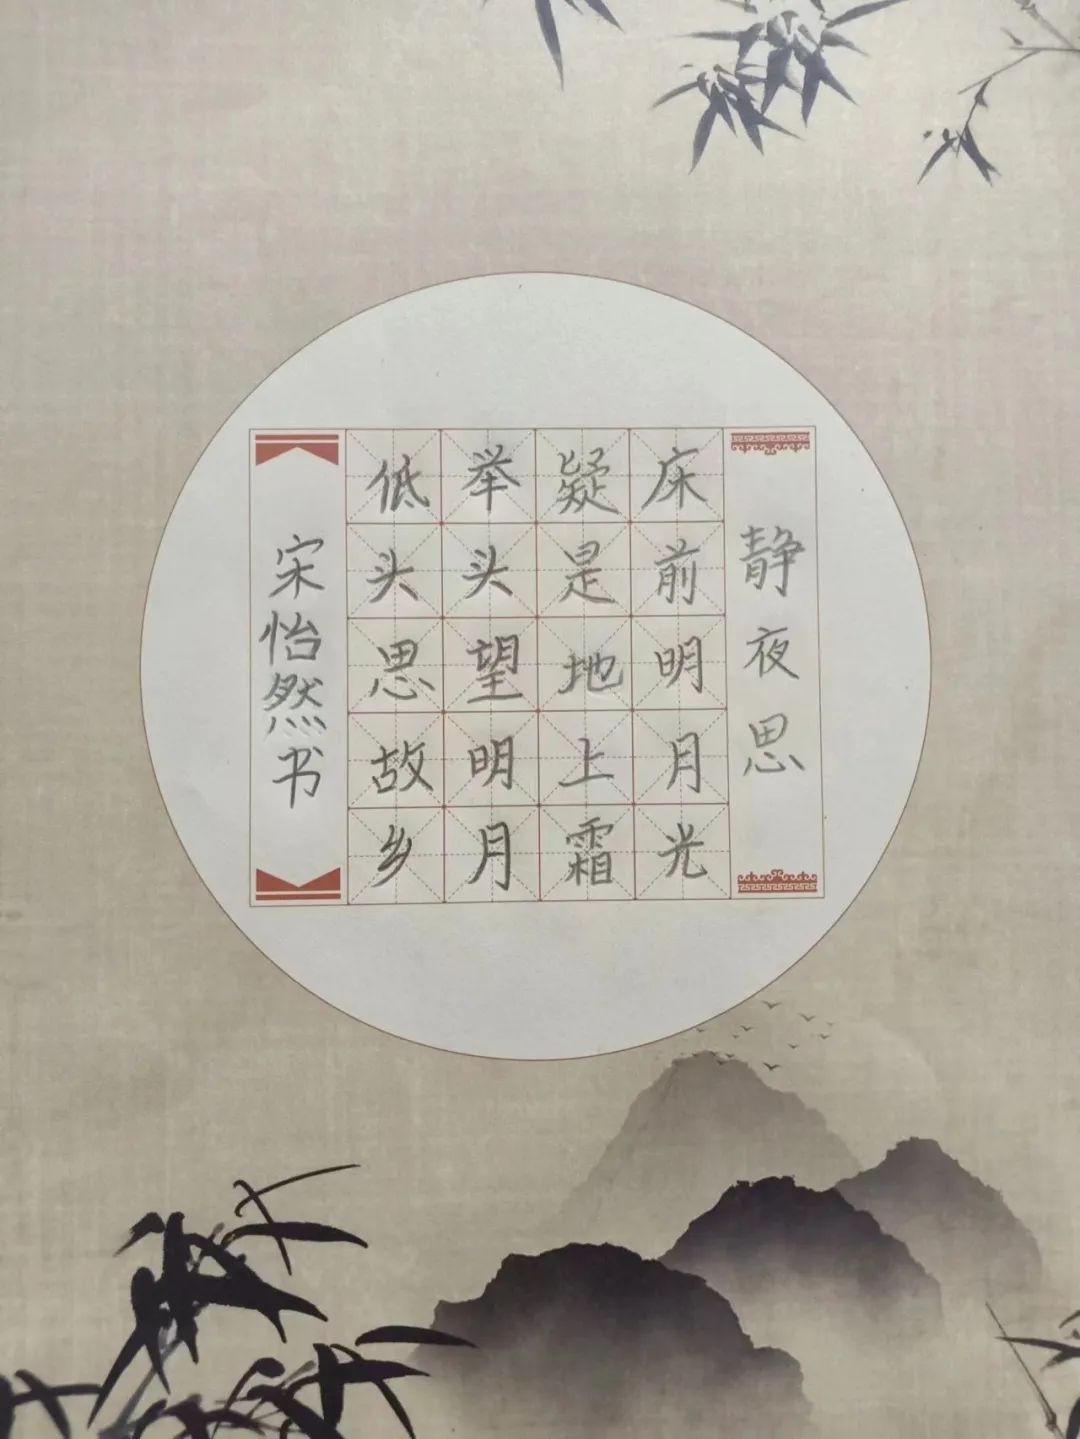 静夜思
床前明月光
疑是地上霜
举头望明月
低头思故乡
宋怡然书